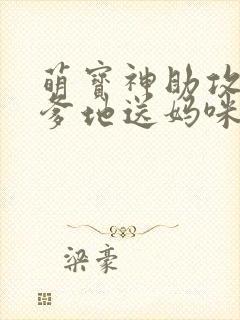 萌寶神助攻
爹地送媽咪
梁豪